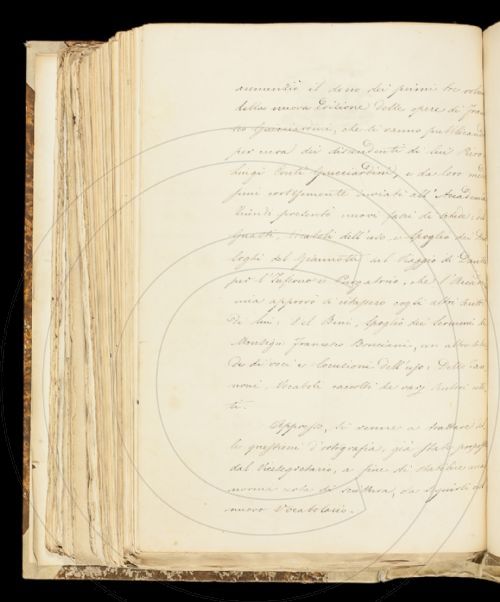 annunziò il dono dei primi tre volu
della nuova edizione delle opere di Fran
co Guicciardini, che si vanno pubblicand
per cura dei discendenti di lui Piero
Luigi Conti Guicciardini, e da loro mede
simi cortesemente inviati all'Accademia
Quindi presentò nuovi fasci di schede, il
Guasti, Vocaboli dell'uso, e Spoglio dei Dia
loghi del Giannotti sul Viaggio di Dante
per l'Inferno e Purgatorio, che l'Accade
mia approvò si citassero cogli altri scritti
di lui: Del Bini, Spoglio dei Sermoni di
Monsignr Francesco Bonciani, un altro
di voci e locuzioni dell'uso: Dello Zan
noni, Vocaboli raccolti da varj Autori cita
ti.
Appresso, si venne a trattare del
le questioni d'ortografia, già state propost
dal Vicesegretario, a fine di stabilire una
norma sola di scrittura, da seguirsi nel
nuovo Vocabolario.